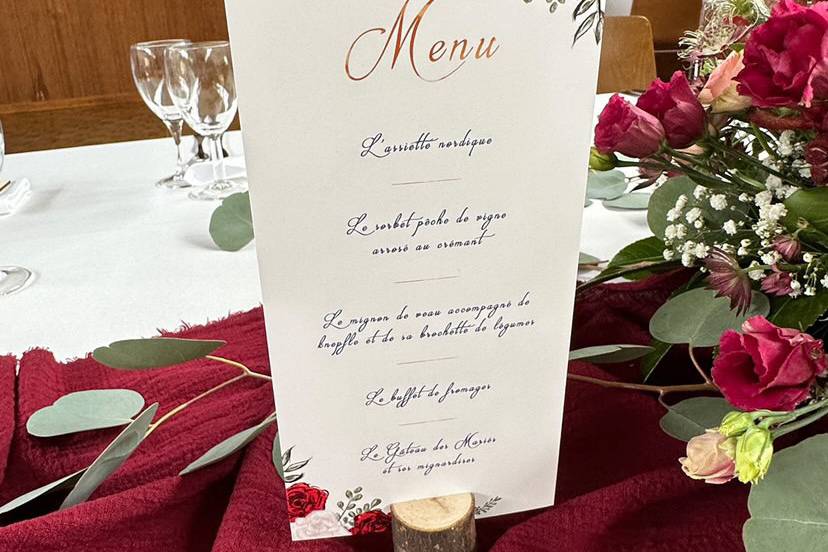 Menu
L'assiette nordique
Le sorbet pêche de vigne
arrosé au crémant
Le mignon de veau accompagné de
knepfle et de sa brochette de légumes
Le buffet de fromages
Le Gâteau des Mariés
et ses mignardises